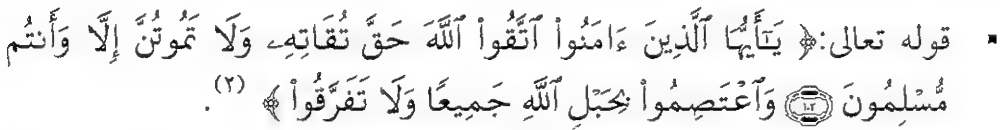 ▪ قوله تعالى: ﴿ يَـٰٓأَيُّهَا ٱلَّذِينَ ءَامَنُوا۟ ٱتَّقُوا۟ ٱللَّهَ حَقَّ تُقَاتِهِۦ وَلَا تَمُوتُنَّ إِلَّا وَأَنتُم
مُّسْلِمُونَ ۝١٠٢ وَٱعْتَصِمُوا۟ بِحَبْلِ ٱللَّهِ جَمِيعًا وَلَا تَفَرَّقُوا۟ ﴾ (٢).